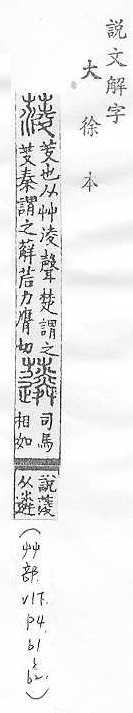 說文解字
大徐本
蔆 芰也从艸淩聲楚謂之
芰秦謂之薢茩力膺切 𧅫 司馬
相如
說蔆
从遴
(艸部.
V1下.
P4.
61
&
62.)